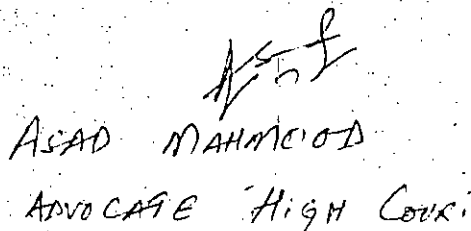 ASAD MAHMOOD
ADVOCATE HIGH COURT